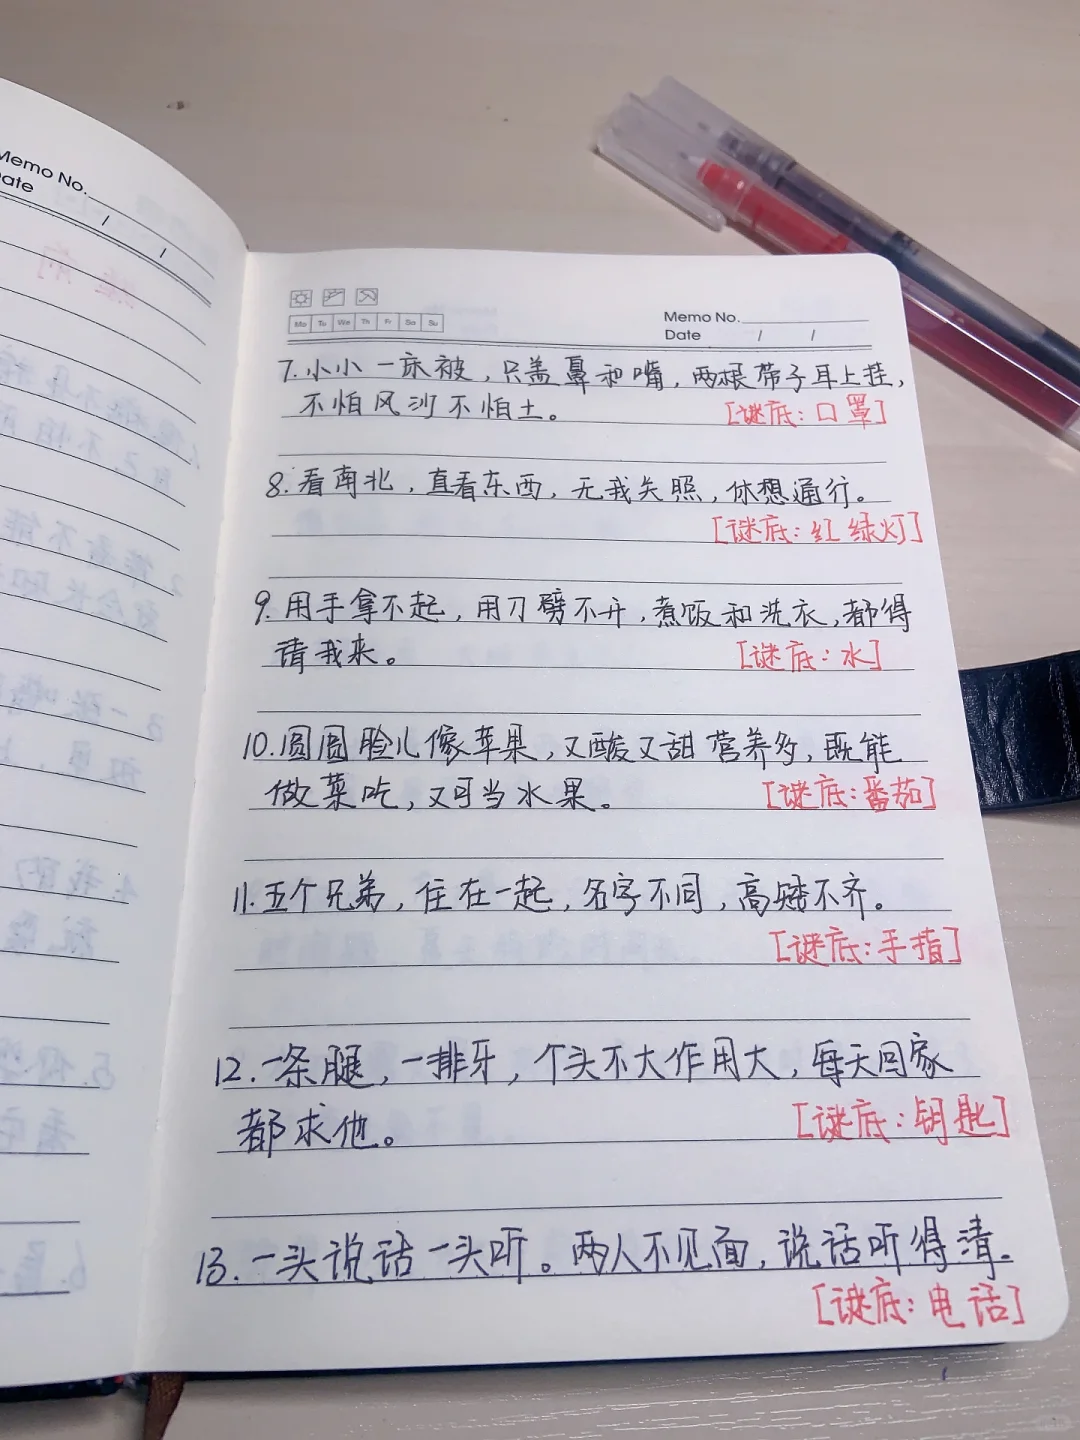 Memo No.
Date / /
Mo Tu We Th Fr Sa Su
Memo No.
Date / /
7.小小一床被，只盖鼻和嘴，两根带子耳上挂，
不怕风沙不怕土。 [谜底：口罩]
8.看南北，直看东西，无我关照，休想通行。
[谜底：红绿灯]
9.用手拿不起，用刀劈不开，煮饭和洗衣，都得
请我来。 [谜底：水]
10.圆圆脸儿像苹果，又酸又甜营养多，既能
做菜吃，又可当水果。 [谜底：番茄]
11.五个兄弟，住在一起，名字不同，高矮不齐。
[谜底：手指]
12.一条腿，一排牙，个头不大作用大，每天回家
都求他。 [谜底：钥匙]
13.一头说话一头听。两人不见面，说话听得清。
[谜底：电话]